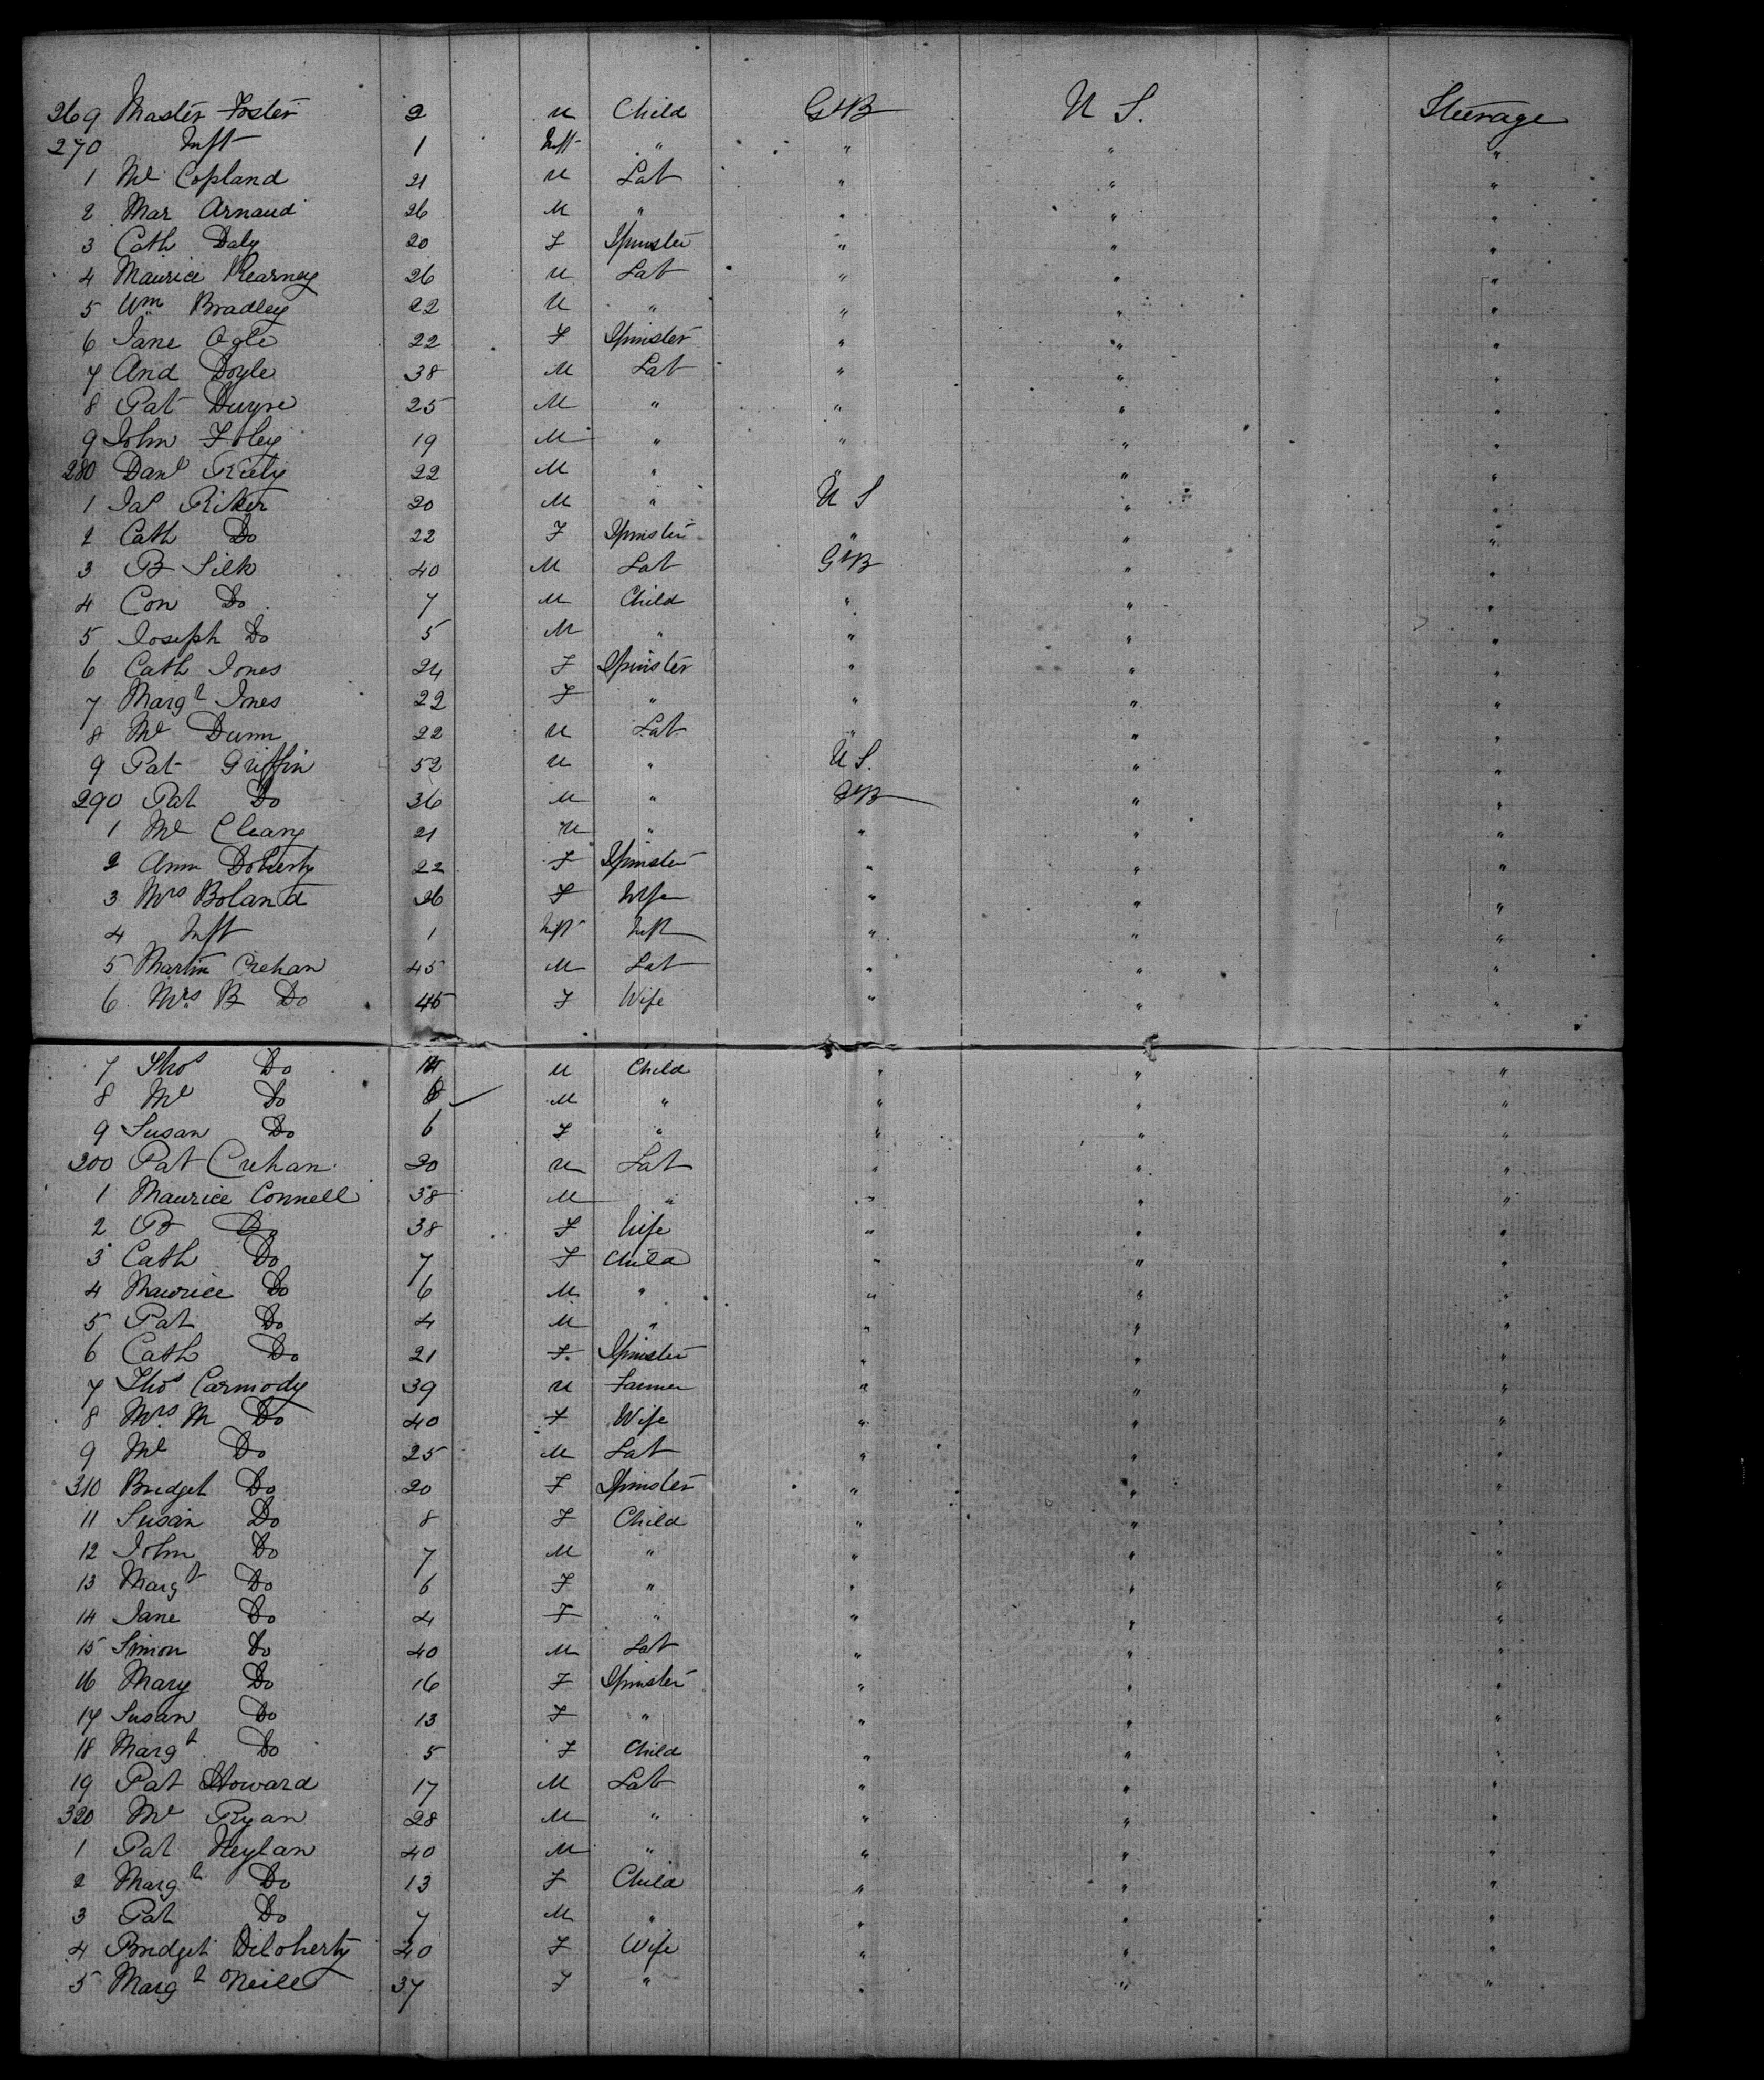 269 Master Foster 2 M Child GtB U S. Steerage
270 Inft 1 Inft " " " "
1 Ml Copland 21 M Lab " " "
2 Mar Arnaud 26 M " " " "
3 Cath Daly 20 F Spinster " " "
4 Maurice Kearney 26 M Lab " " "
5 Wm Bradley 22 M " " " "
6 Jane Ogle 22 F Spinster " " "
7 And Doyle 38 M Lab " " "
8 Pat 25 M " " " "
9 John Foley 19 M " " " "
280 Danl 22 M " " " "
1 Jas Riker 20 M " U S " "
2 Cath Do 22 F Spinster " " "
3 B Silk 40 M Lab GtB " "
4 Con Do 7 M Child " " "
5 Joseph Do 5 M " " " "
6 Cath Jones 24 F Spinster " " "
7 Margt Jones 22 F " " " "
8 Ml Dunn 22 M Lab " " "
9 Pat Griffin 52 M " U S. " "
290 Pat Do 36 M " GtB " "
1 Ml Cleary 21 M " " " "
2 Ann Doherty 22 F Spinster " " "
3 Mrs Boland 26 F Wife " " "
4 Inft 1 Inft Inft " " "
5 Martin Crehan 45 M Lab " " "
6 Mrs B Do 45 F Wife " " "
7 Thos Do M Child " " "
8 Ml Do M " " " "
9 Susan Do 6 F " " " "
300 Pat Crehan 20 M Lab " " "
1 Maurice Connell 38 M " " " "
2 B Do 38 F Wife " " "
3 Cath Do 7 F Child " " "
4 Maurice Do 6 M " " " "
5 Pat Do 4 M " " " "
6 Cath Do 21 F. Spinster " " "
7 Thos Carmody 39 M Farmer " " "
8 Mrs M Do 40 F Wife " " "
9 Ml Do 25 M Lab " " "
310 Bridget Do 20 F Spinster " " "
11 Susan Do 8 F Child " " "
12 John Do 7 M " " " "
13 Margt Do 6 F " " " "
14 Jane Do 4 F " " " "
15 Simon Do 40 M Lab " " "
16 Mary Do 16 F Spinster " " "
17 Susan Do 13 F " " " "
18 Margt Do 5 F Child " " "
19 Pat Howard 17 M Lab " " "
320 Ml Ryan 28 M " " " "
1 Pat Neylan 40 M " " " "
2 Margt Do 13 F Child " " "
3 Pat Do 7 M " " " "
4 Bridget 40 F Wife " " "
5 Margt ONeill 37 F " " " "